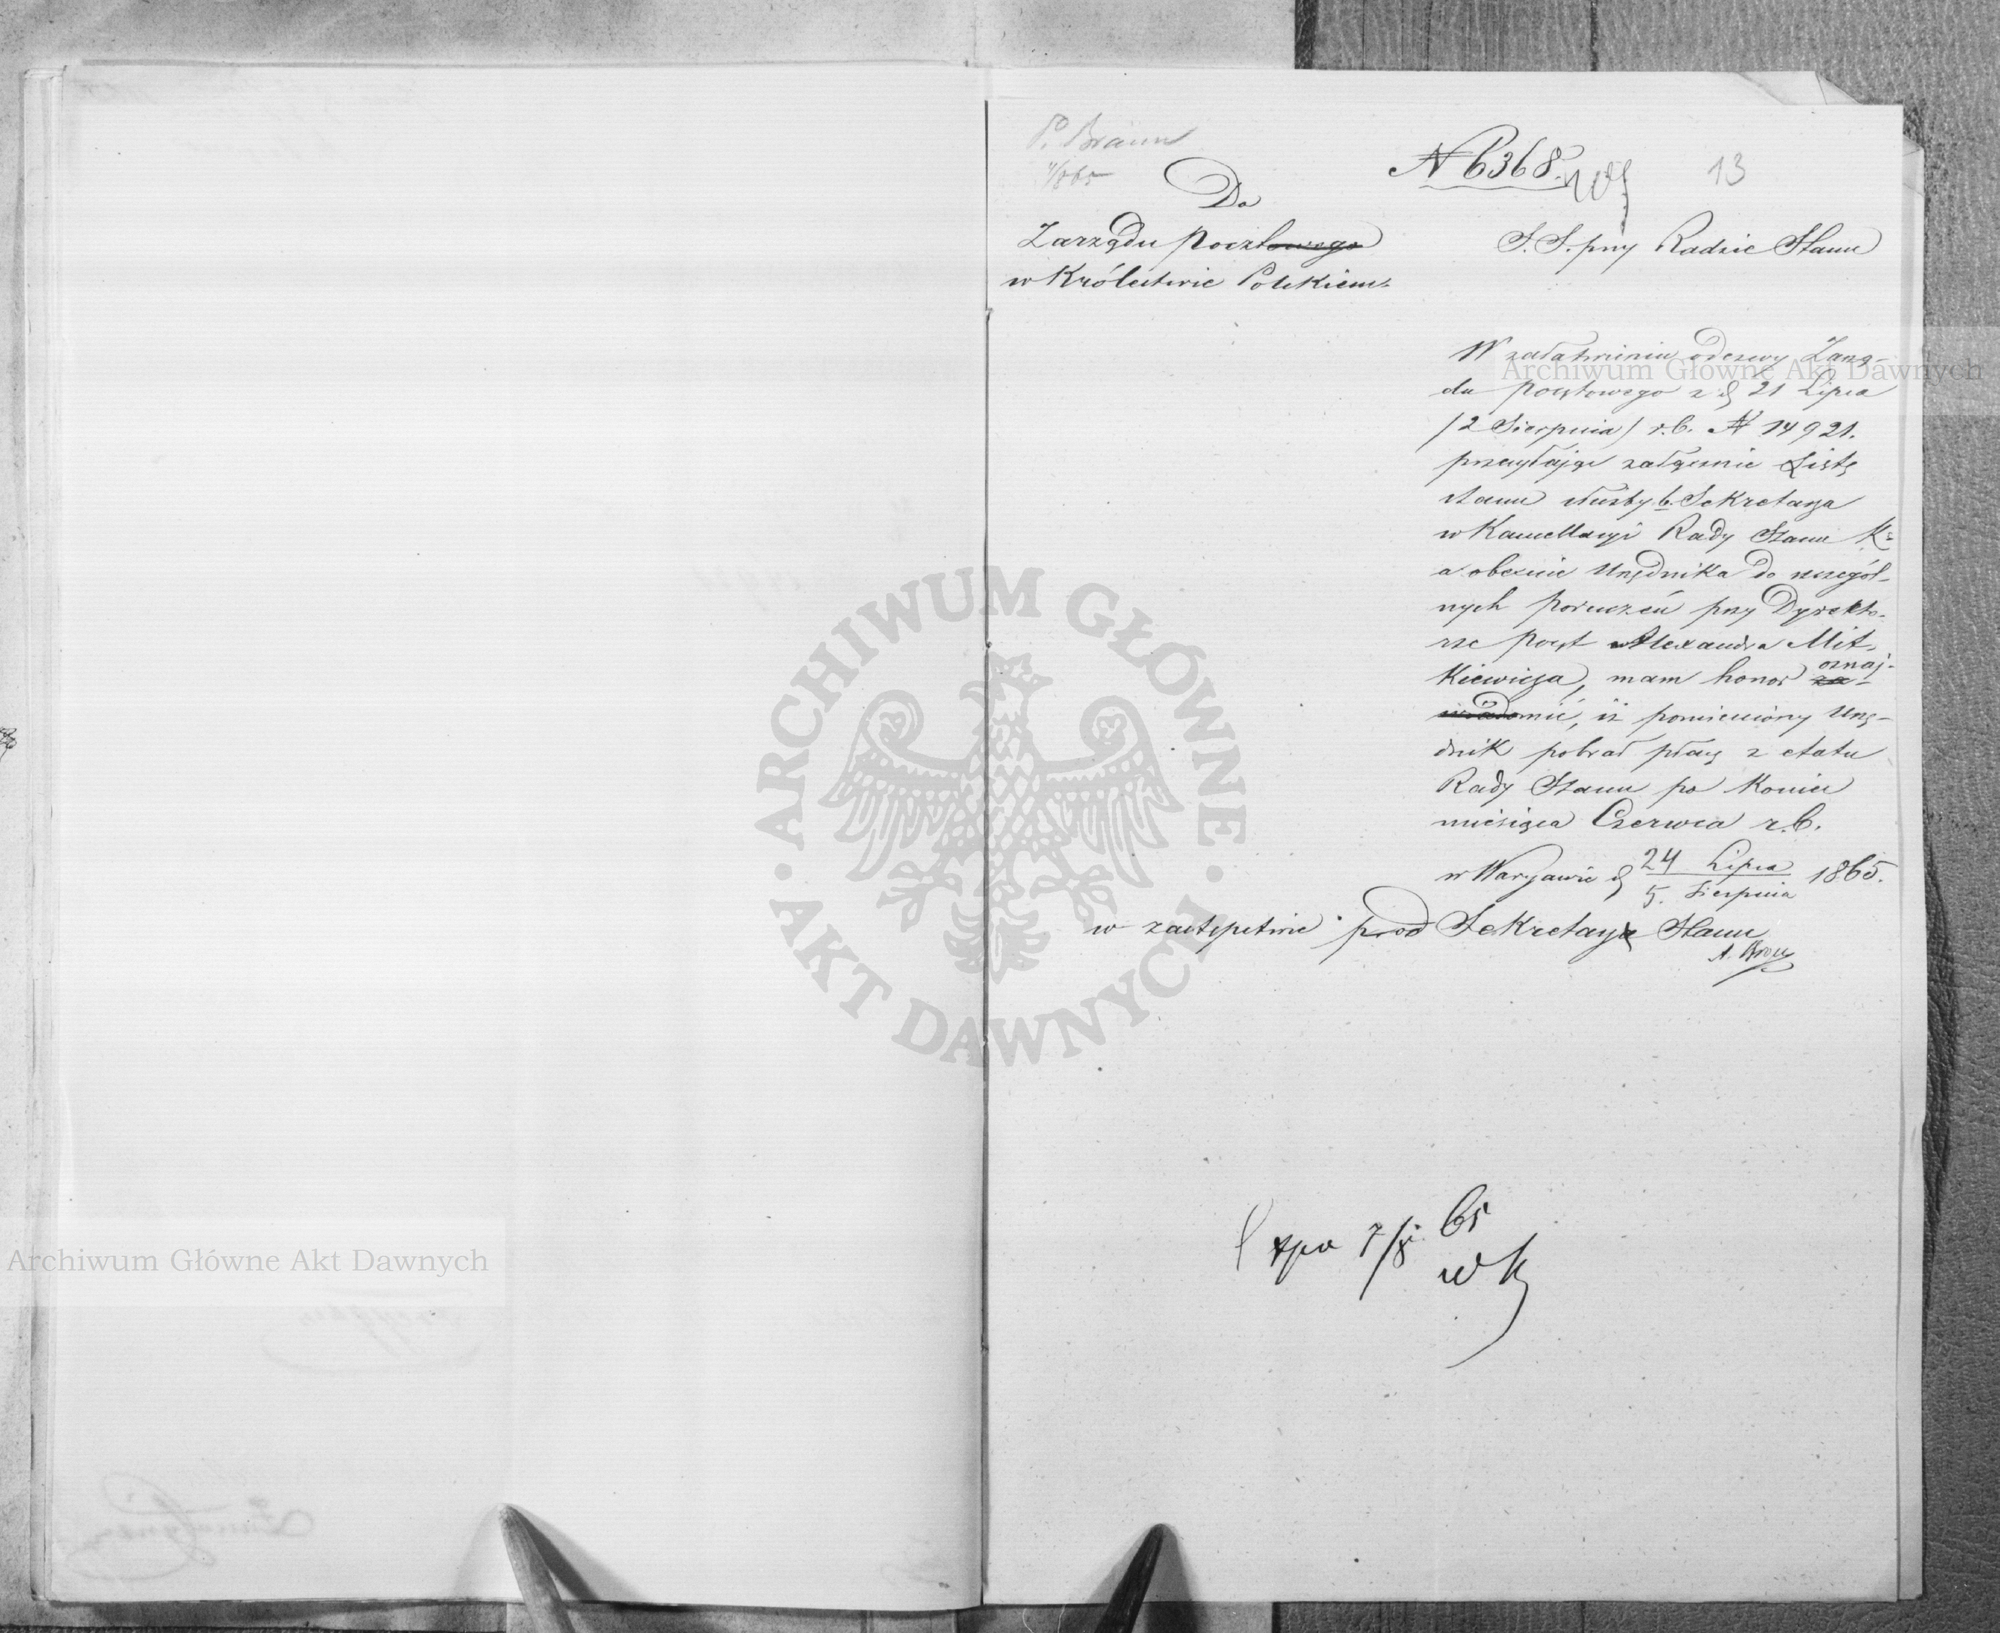 P. Braun
N 6368.
13
Do
Zarządu Pocztowego
w Królestwie Polskiem
S. S. przy Radzie Stanu
W załatwieniu odezwy Zarzą-
du Pocztowego z d. 21 Lipca
/2 Sierpnia/ r.b. N 14921.
przesyłając załącznie Listę
stanu służby b. Sekretarza
w Kancellaryi Rady Stanu K-
a obecnie Urzędnika do szczegól-
nych poruczeń przy Dyrekto-
rze Poczt Alexandra Mit-
kiewicza, mam honor za- oznaj-
wiadomić, iż pomieniony Urzę-
dnik pobrał płacę z etatu
Rady Stanu po koniec
miesiąca Czerwca r.b.
w Warszawie d. 24 Lipca 1865.
5. Sierpnia
w zastępstwie pod Sekretarza Stanu
Exp 7/8 65
Archiwum Główne Akt Dawnych
Archiwum Główne Akt Dawnych
ARCHIWUM GŁÓWNE
AKT DAWNYCH